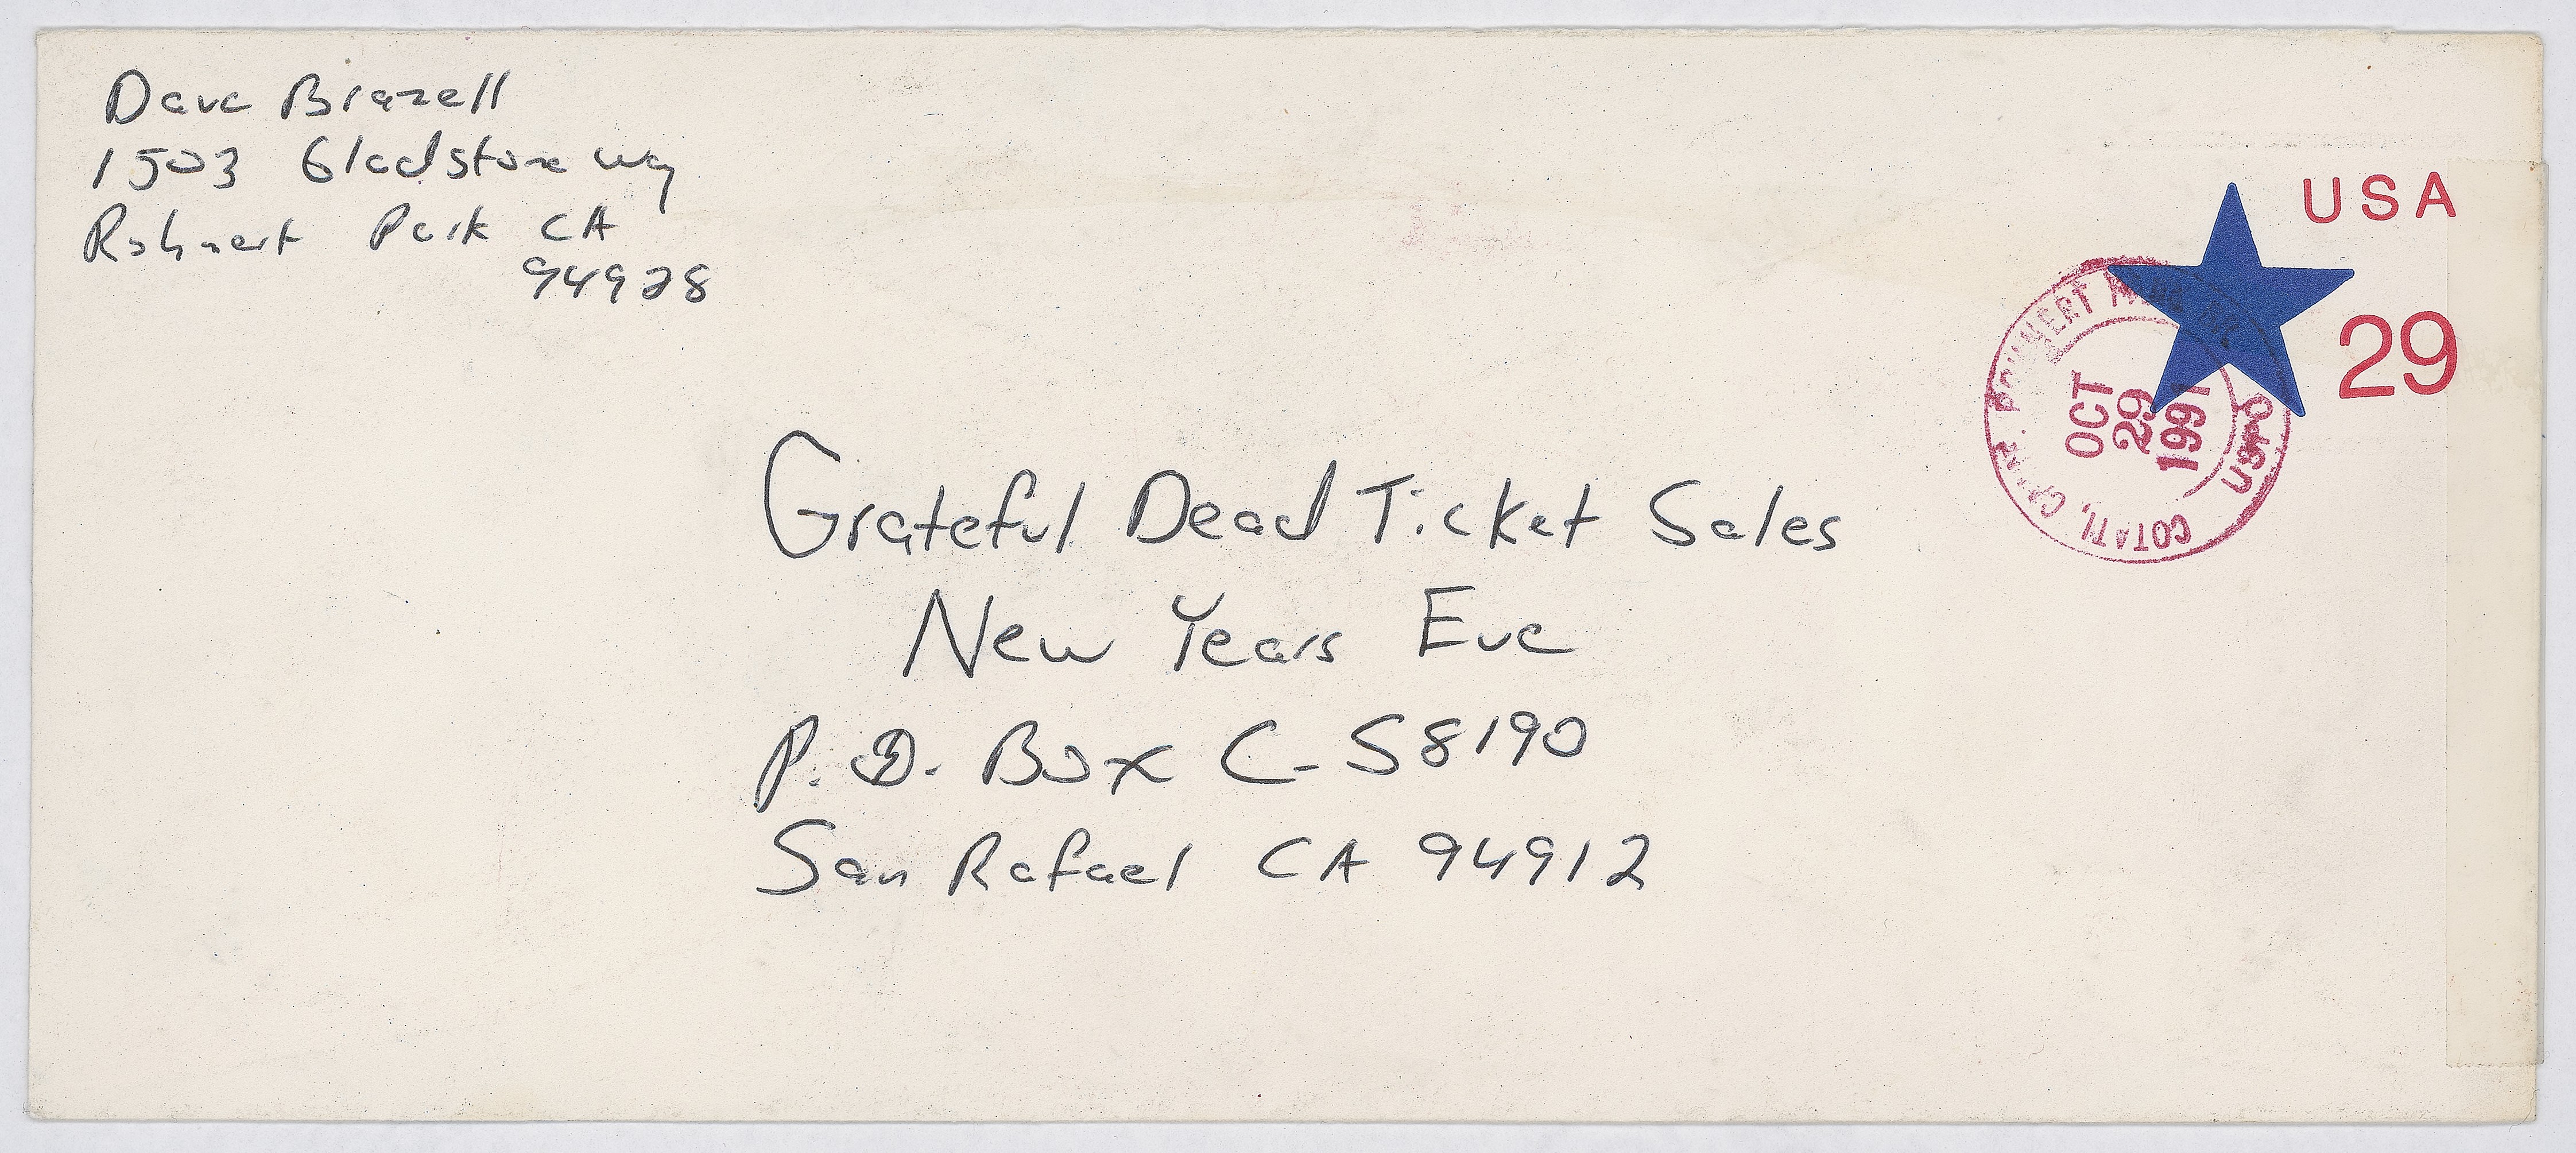 Dave Brazell
1503 Gladstone Way
Rohnert Park CA
94928
USA
29
OCT
29
1991
COTATI,
USPO
Grateful Dead Ticket Sales
New Years Eve
P.O. Box C-S8190
San Rafael CA 94912